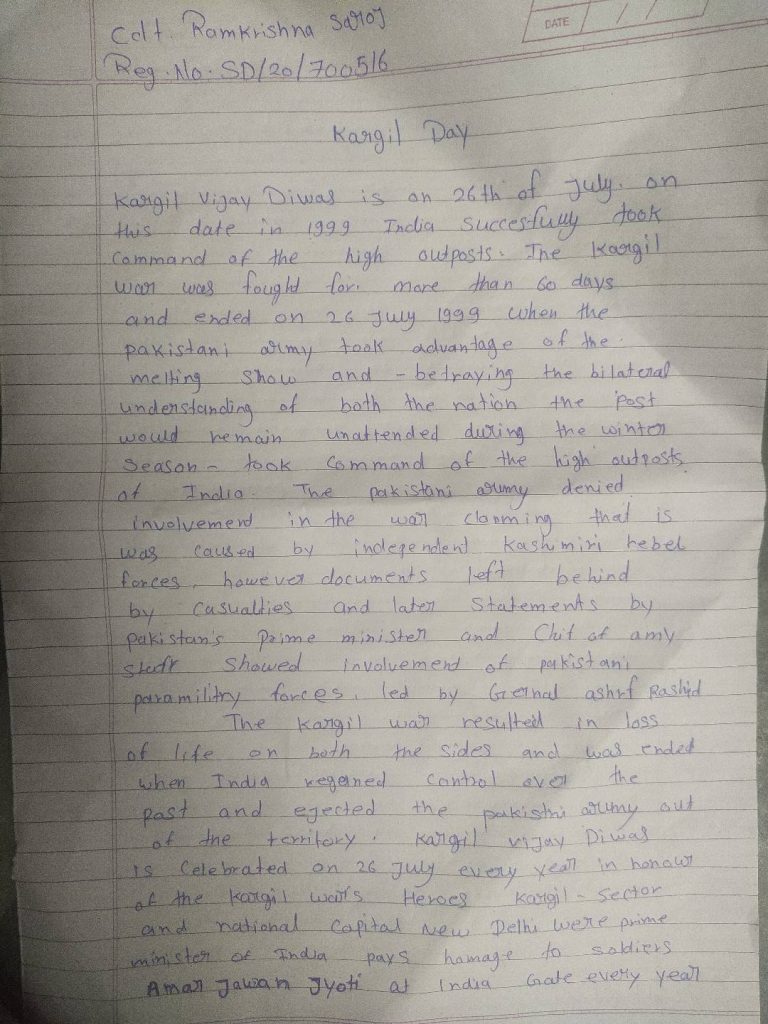 Cdt. Ramkrishna Saroj
Reg. No. SD/20/700516
DATE
Kargil Day
Kargil Vijay Diwas is on 26th of July. on
this date in 1999 India Succesfully took
Command of the high outposts. The Kargil
war was fought for more than 60 days
and ended on 26 July 1999 when the
pakistani army took advantage of the
melting Show and - betraying the bilateral
understanding of both the nation the post
would remain unattended during the winter
Season - took Command of the high outposts
of India. The pakistani arumy denied
involvement in the war clamming that is
was caused by independent Kashmiri rebel
forces, however documents left behind
by Casualties and later Statements by
pakistan's Prime minister and Chif of amy
Staff Showed involvement of pakistani
paramilitry forces, led by Gernal ashrf Rashid
The Kargil war resulted in loss
of life on both the sides and was ended
when India regened Control over the
past and ejected the pakistni arumy out
of the territory. Kargil vijay Diwas
is Celebrated on 26 July every year in honour
of the Kargil war's Heroes Kargil - Sector
and national Capital New Delhi were prime
minister of India pays hamage to soldiers
Amar Jawan Jyoti at India Gate every year